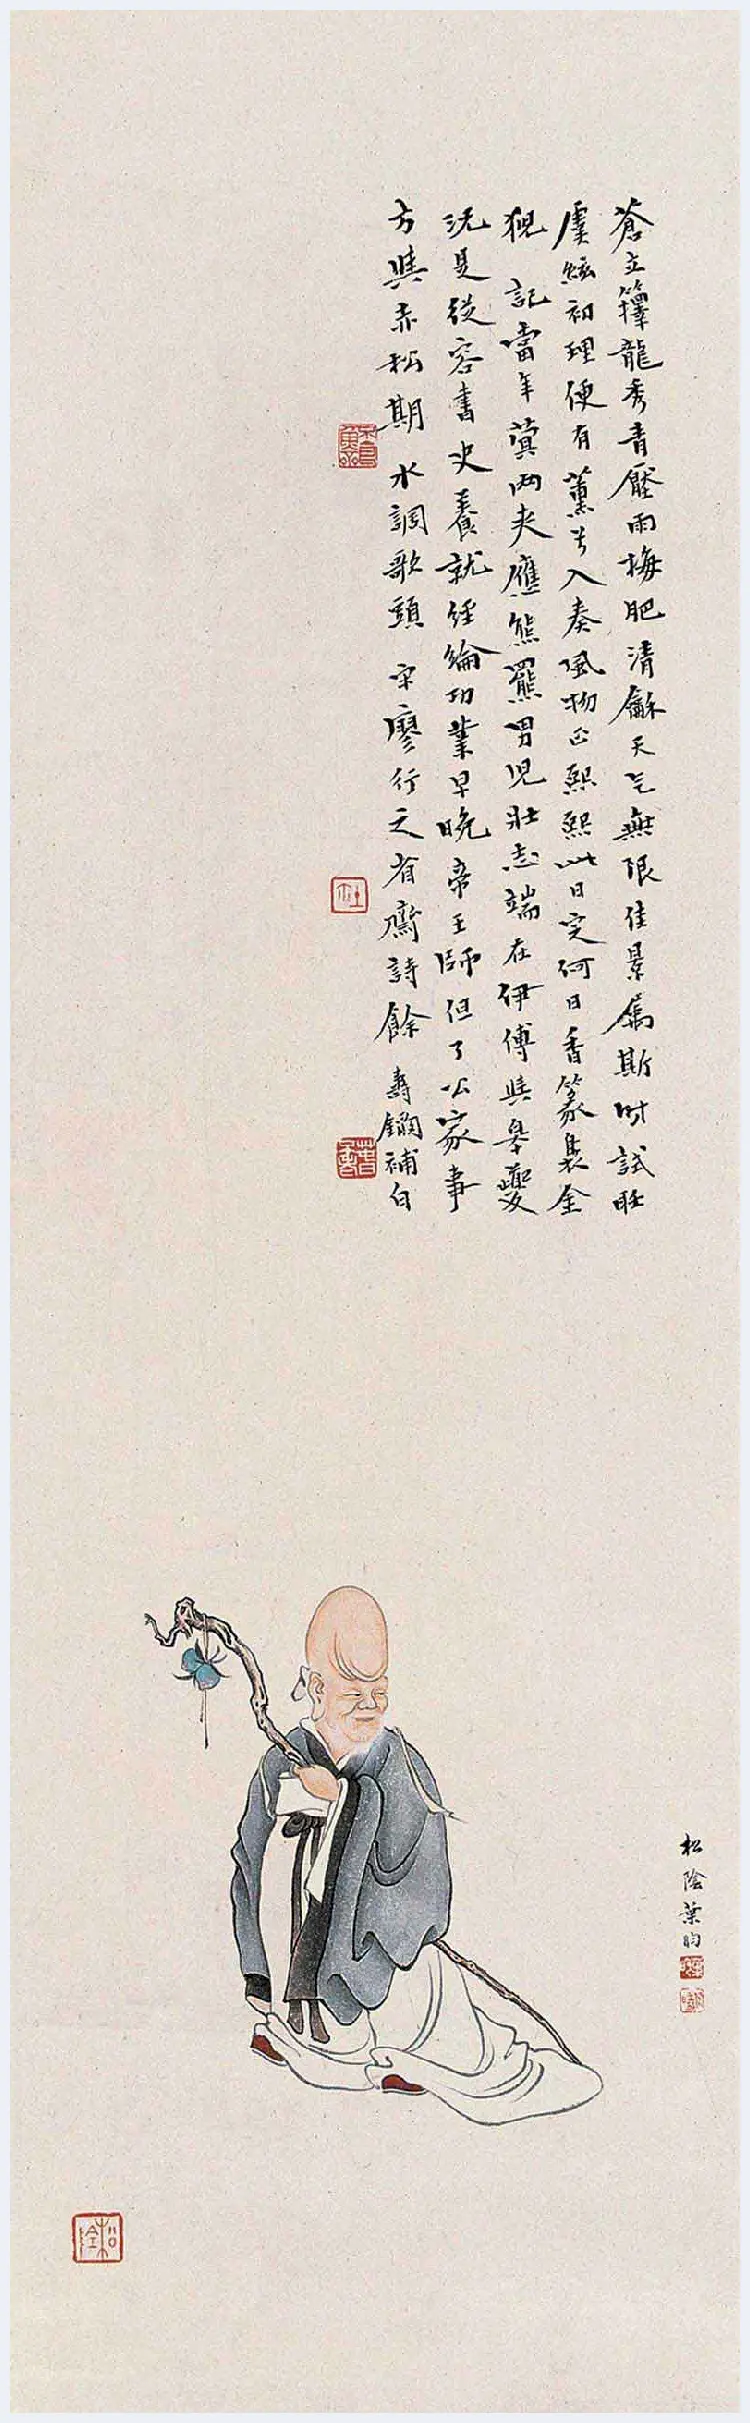 蒼立籜龍秀青壓雨梅肥清龢天气無限佳景屬斯时試听
虞絃初理便有薰兮入奏風物正熙熙此日定何日香篆裊金
猊 記當年蓂兩莢應熊羆男児壯志端在伊傅與皋夔
況是從容書史養就經綸功業早晚帝王師但了公家事
方與赤松期 水調歌頭 宋廖行之省齋詩餘 壽鑈補白
松陰葉昀